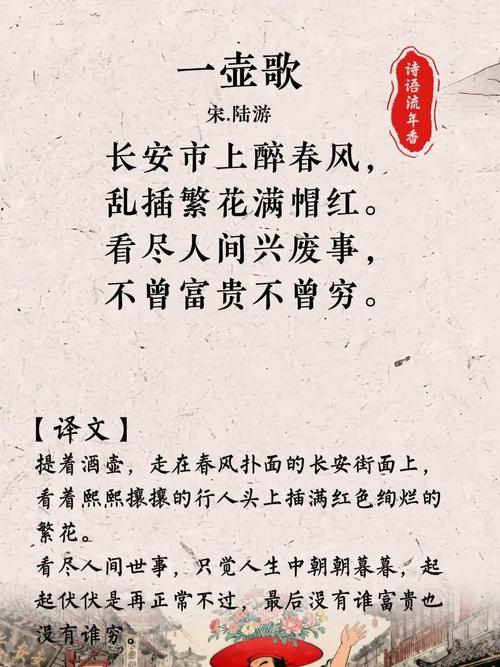 一壶歌
诗语流年香
宋.陆游
长安市上醉春风，
乱插繁花满帽红。
看尽人间兴废事，
不曾富贵不曾穷。
【译文】
提着酒壶，走在春风扑面的长安街面上，
看着熙熙攘攘的行人头上插满红色绚烂的
繁花。
看尽人间世事，只觉人生中朝朝暮暮，起
起伏伏是再正常不过，最后没有谁富贵也
没有谁穷。